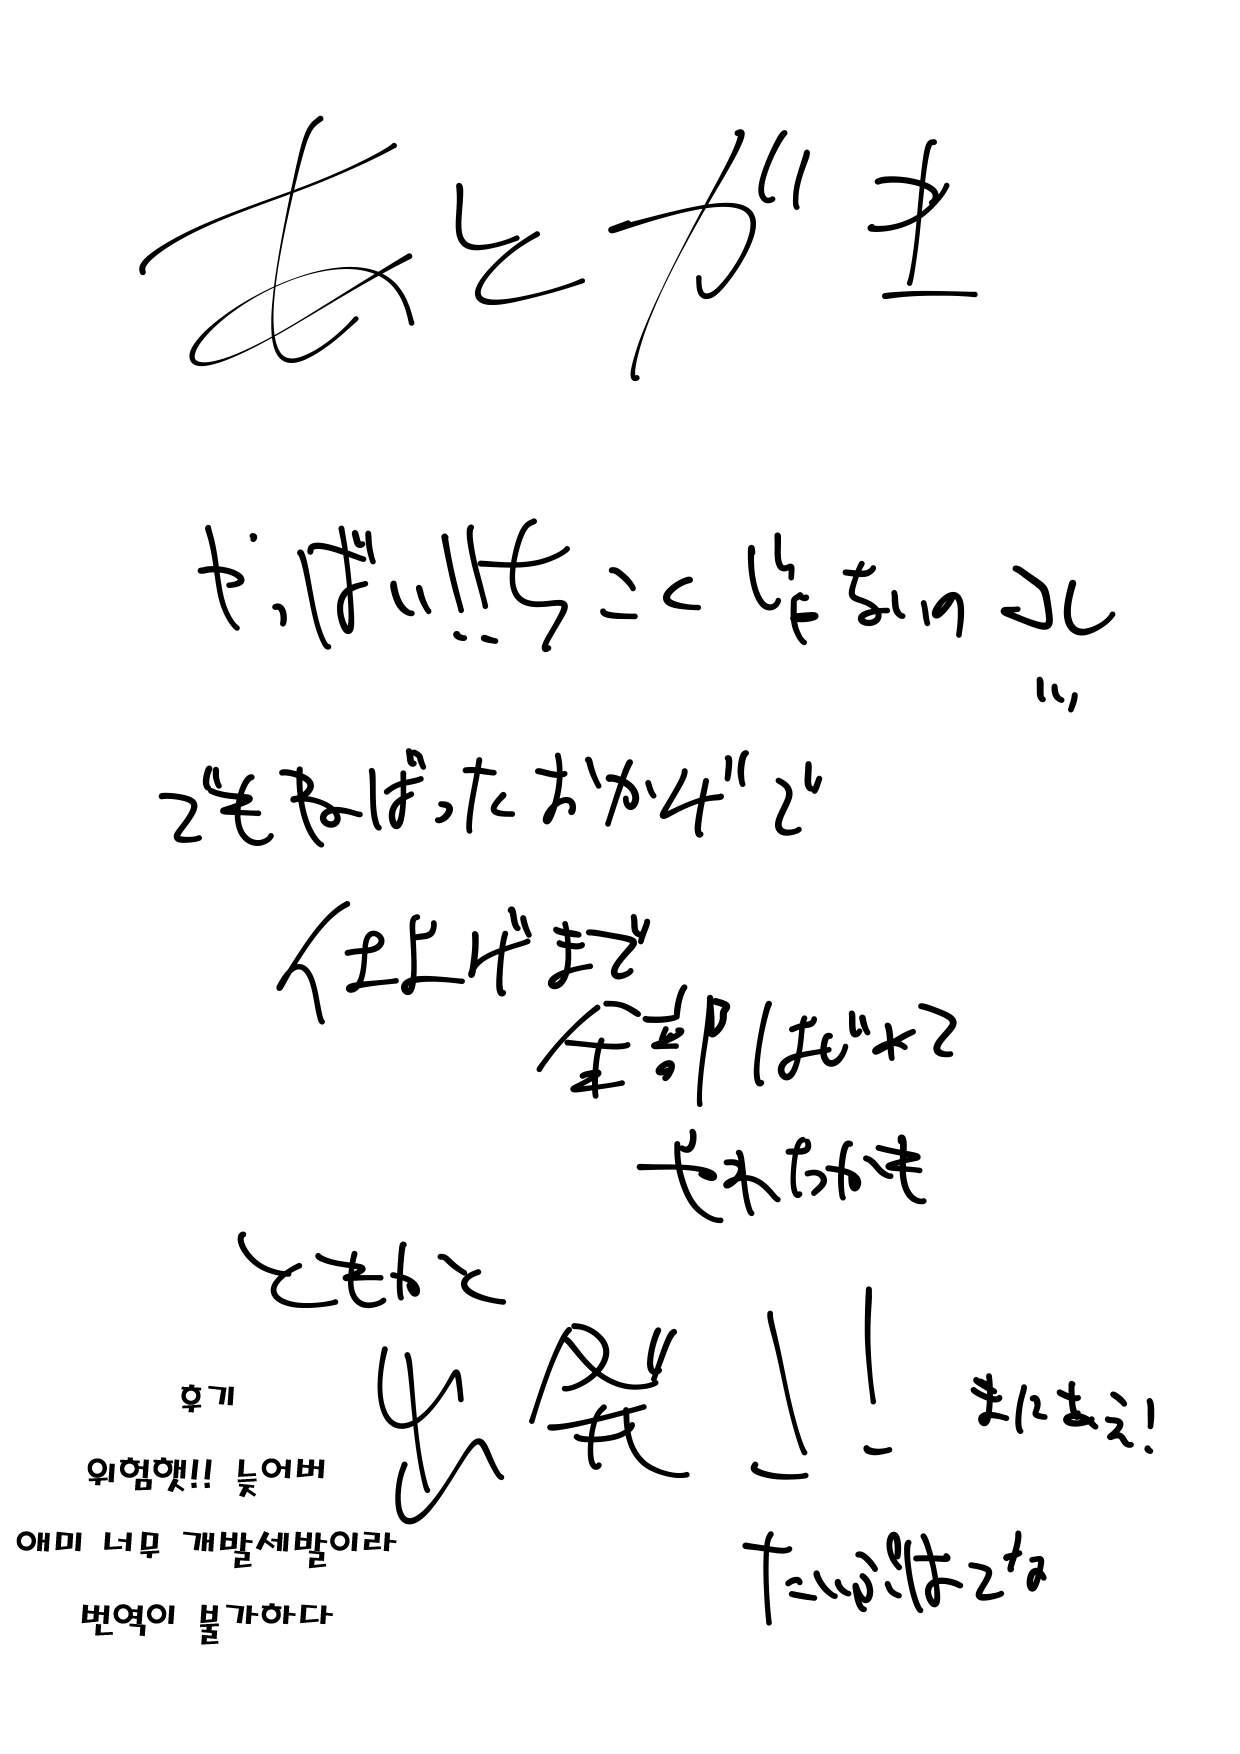 あとがき
やっばい!!ちこくじゃないのコレ
…
でもねばったおかげで
仕上げまで
全部はじめて
やれたかも
ともかく
出発!!
まにあえ!
後기
위험햇!! 늦어버
애미 너무 개발세발이라
번역이 불가하다